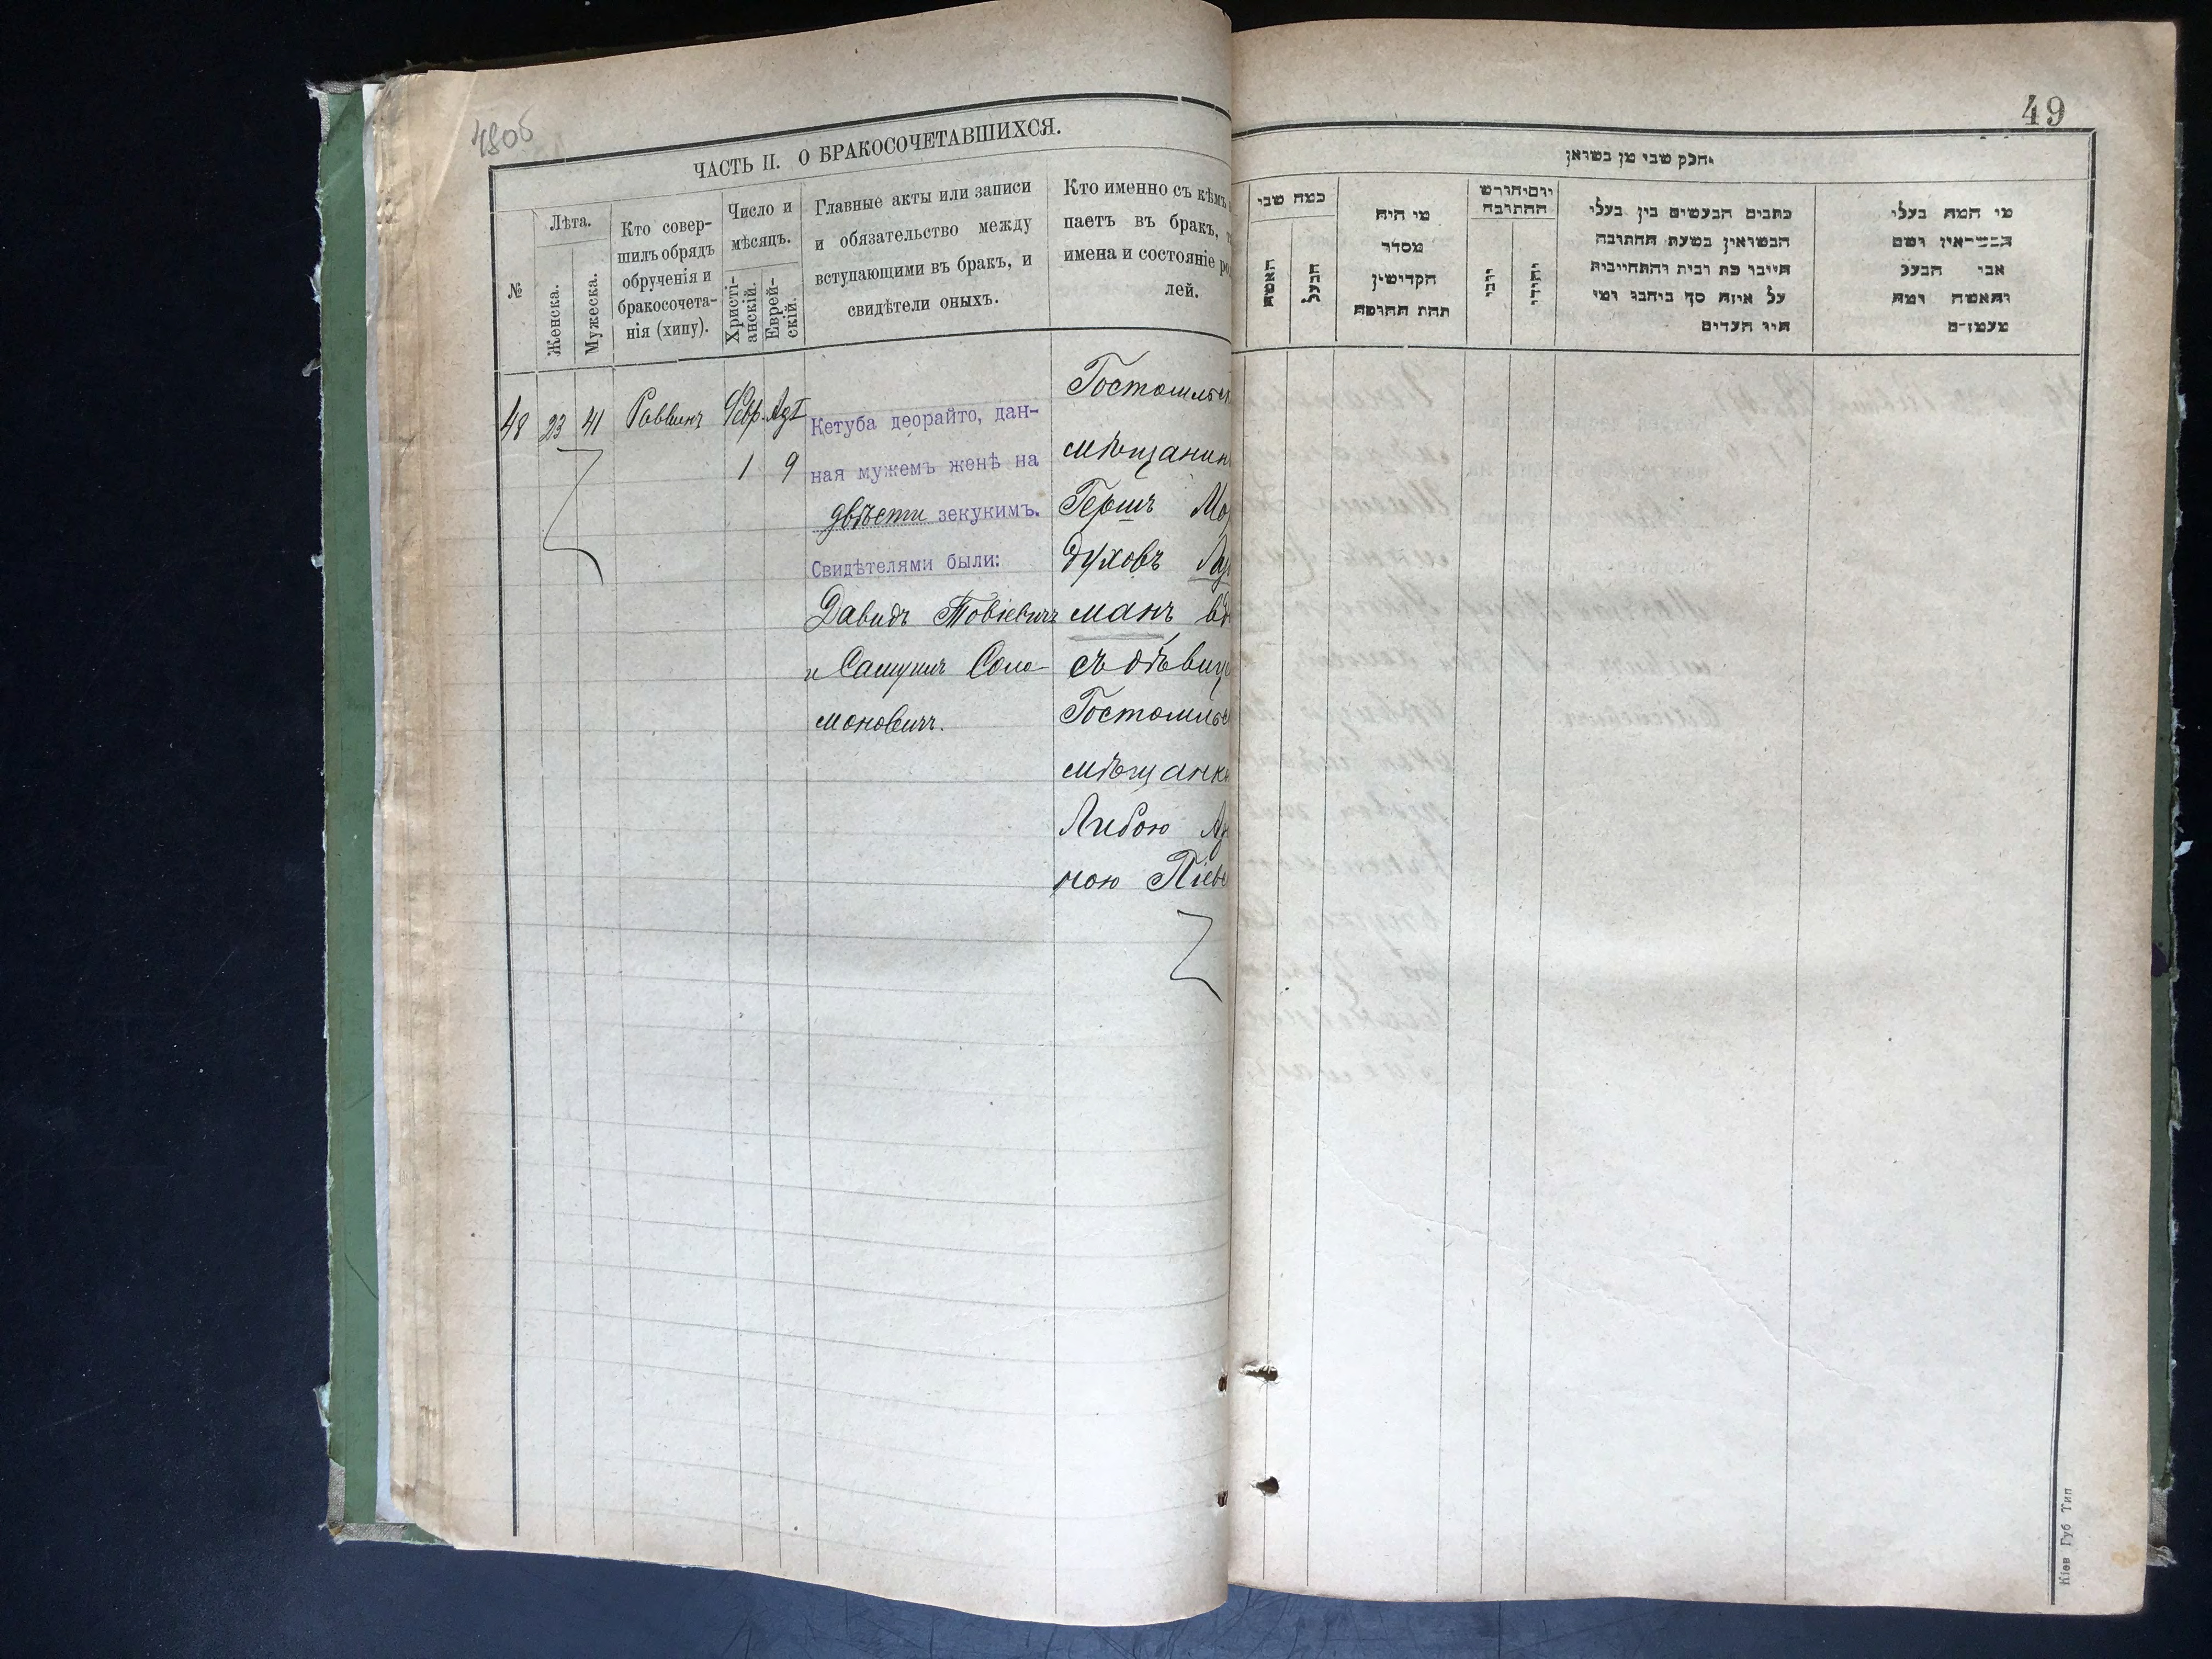 48об
ЧАСТЬ II. О БРАКОСОЧЕТАВШИХСЯ.
№
Лѣта.
Женска.
Мужеска.
Кто совер-
шилъ обрядъ
обрученія и
бракосочета-
нія (хипу).
Число и
мѣсяцъ.
Христі-
анскій.
Еврей-
скій.
Главные акты или записи
и обязательство между
вступающими въ бракъ, и
свидѣтели оныхъ.
Кто именно съ кѣмъ
паетъ въ бракъ,
имена и состояніе ро
лей.
48 23 41 Раввинъ Февр. Ад I
1 9
Кетуба деорайто, дан-
ная мужемъ женѣ на
двѣсти зекукимъ.
Свидѣтелями были:
Давидъ Товіевичъ
и Самуилъ Соло-
моновичъ.
Гостомльск
мѣщанин
Гершъ Мор
духовъ
манъ вд
съ дѣвиц
Гостомльс
мѣщанк
Либою
ною Піев
49
חלק שני מן נשואין
כמה שני
האשה
הבעל
מי היה
מסדר
הקדישין
תחת החופה
יום וחודש
החתונה
כתבים הנעשים בין בעלי
הנשואין בשעת החתונה
על איזה סך ביניהם ומי
היו העדים
מי המה בעלי
הנשואין ושם
אבי הבעל
והאשה ומה
מעמדם
Кіев Губ Тип